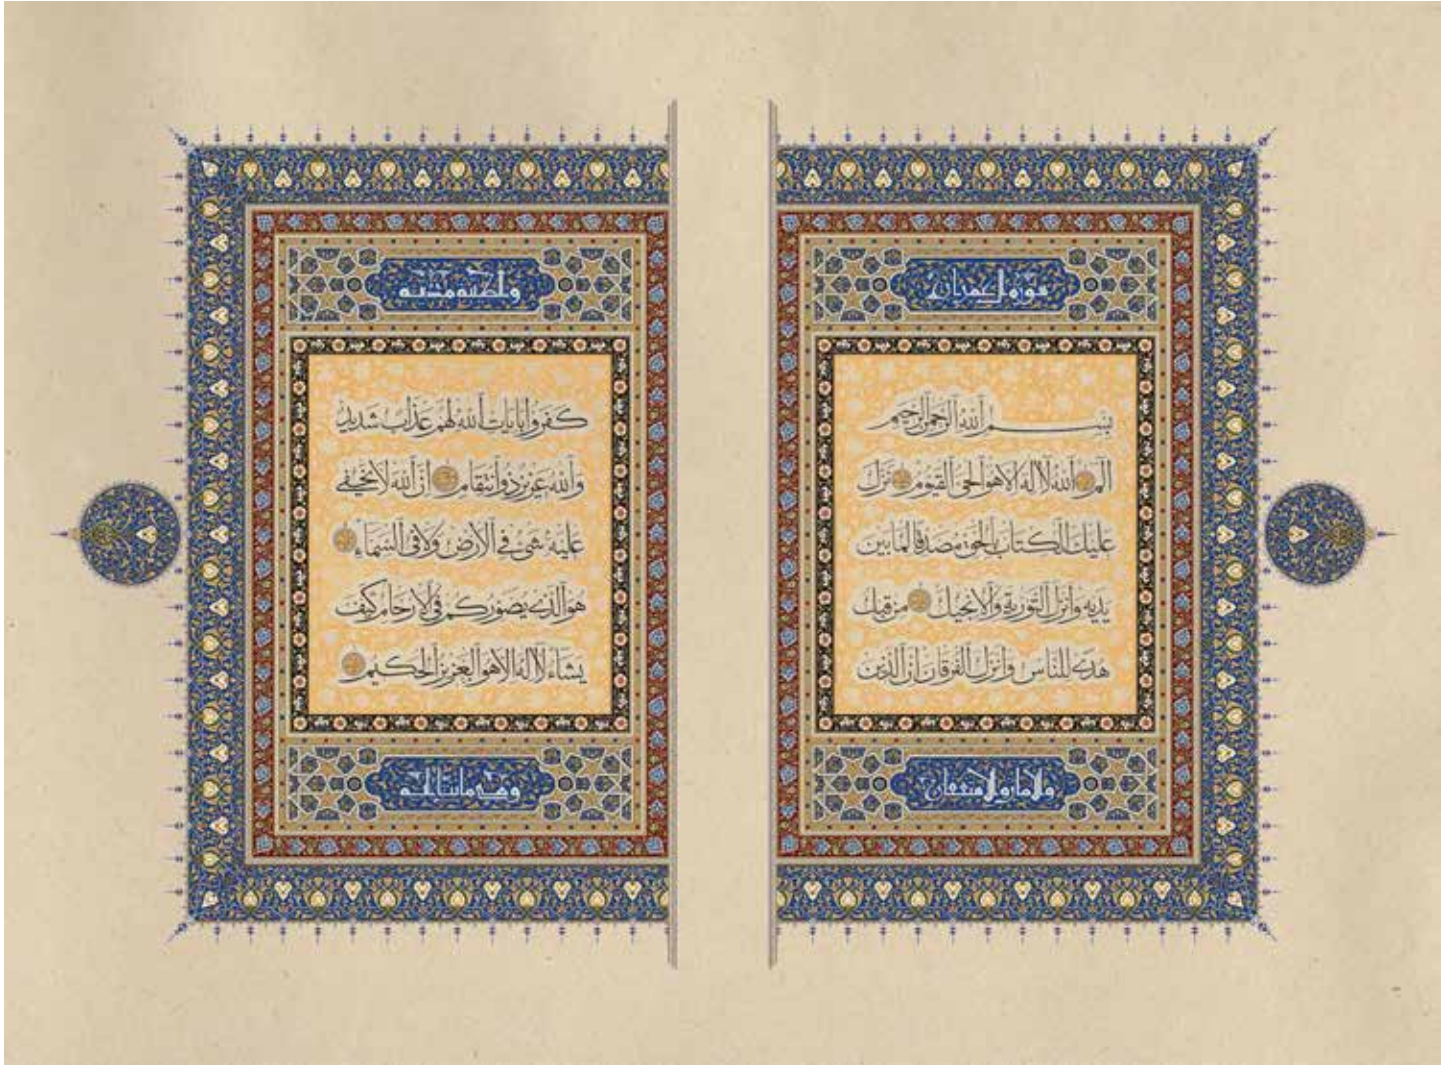 سورة ال عمران
بِسْمِ ٱللَّهِ ٱلرَّحْمٰنِ ٱلرَّحِيمِ
الٓمٓ ٱللَّهُ لَآ اِلٰهَ اِلَّا هُوَ ٱلْحَىُّ ٱلْقَيُّومُ نَزَّلَ
عَلَيْكَ ٱلْكِتَابَ بِٱلْحَقِّ مُصَدِّقًا لِمَا بَيْنَ
يَدَيْهِ وَاَنْزَلَ ٱلتَّوْرٰيةَ وَٱلْاِنْجِيلَ مِنْ قَبْلُ
هُدًى لِلنَّاسِ وَاَنْزَلَ ٱلْفُرْقَانَ اِنَّ ٱلَّذِينَ
مدنية
كَفَرُوا بِاٰيَاتِ ٱللَّهِ لَهُمْ عَذَابٌ شَدِيدٌ
وَٱللَّهُ عَزِيزٌ ذُو ٱنْتِقَامٍ اِنَّ ٱللَّهَ لَا يَخْفٰى
عَلَيْهِ شَىْءٌ فِى ٱلْاَرْضِ وَلَا فِى ٱلسَّمَآءِ
هُوَ ٱلَّذِى يُصَوِّرُكُمْ فِى ٱلْاَرْحَامِ كَيْفَ
يَشَآءُ لَآ اِلٰهَ اِلَّا هُوَ ٱلْعَزِيزُ ٱلْحَكِيمُ
وهى مائتا اية